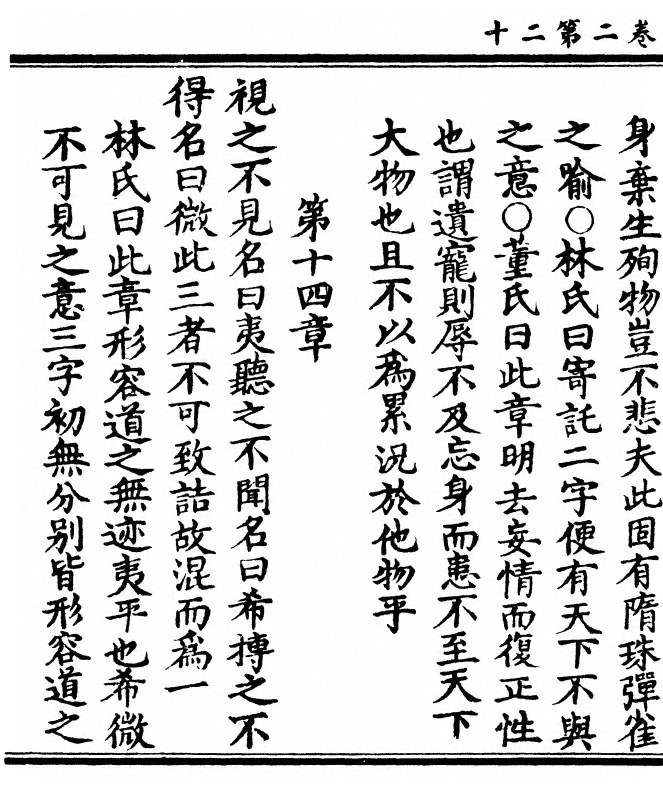 卷二第二十
身棄生殉物豈不悲夫此固有隋珠彈雀
之喻○林氏曰寄託二字便有天下不與
之意○董氏曰此章明去妄情而復正性
也謂遺寵則辱不及忘身而患不至天下
大物也且不以爲累況於他物乎
第十四章
視之不見名曰夷聽之不聞名曰希摶之不
得名曰微此三者不可致詰故混而爲一
林氏曰此章形容道之無迹夷平也希微
不可見之意三字初無分别皆形容道之